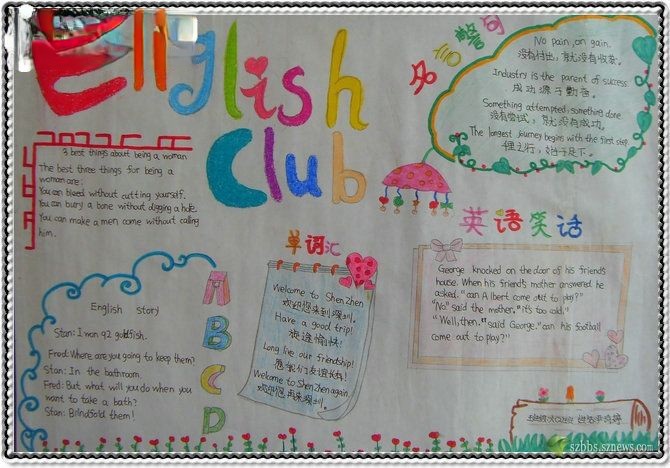 English
Club
名言警句
No pain,on gain.
没有付出,就没有收获。
Industry is the parent of success.
成功源于勤奋。
Something attempted,something done.
没有尝试,就没有成功。
The longest journey begins with the first step.
里之行,始于足下。
3 best things about being a woman
The best three things for being a
woman are:
You can bleed without cutting yourself.
You can bury a bone without digging a hole.
You can make a men come without calling
him.
英语笑话
George knocked on the door of his friend's
house. When his friend's mother answered he
asked." can Albert come out to play?"
"No." said the mother. "it's too cold."
"Well, then," said George." can his football
come out to play?"
单词汇
Welcome to ShenZhen
欢迎您来到深圳。
Have a good trip!
旅途愉快!
Long live our friendship!
愿我们友谊长存!
Welcome to ShenZhen again.
欢迎您再来深圳。
English Story
Stan: I won 92 goldfish.
Fred: Where are you going to keep them?
Stan: In the bathroom.
Fred: But what will you do when you
want to take a bath?
Stan: Blindfold them!
A
B
C
D
szbbs.sznews.com